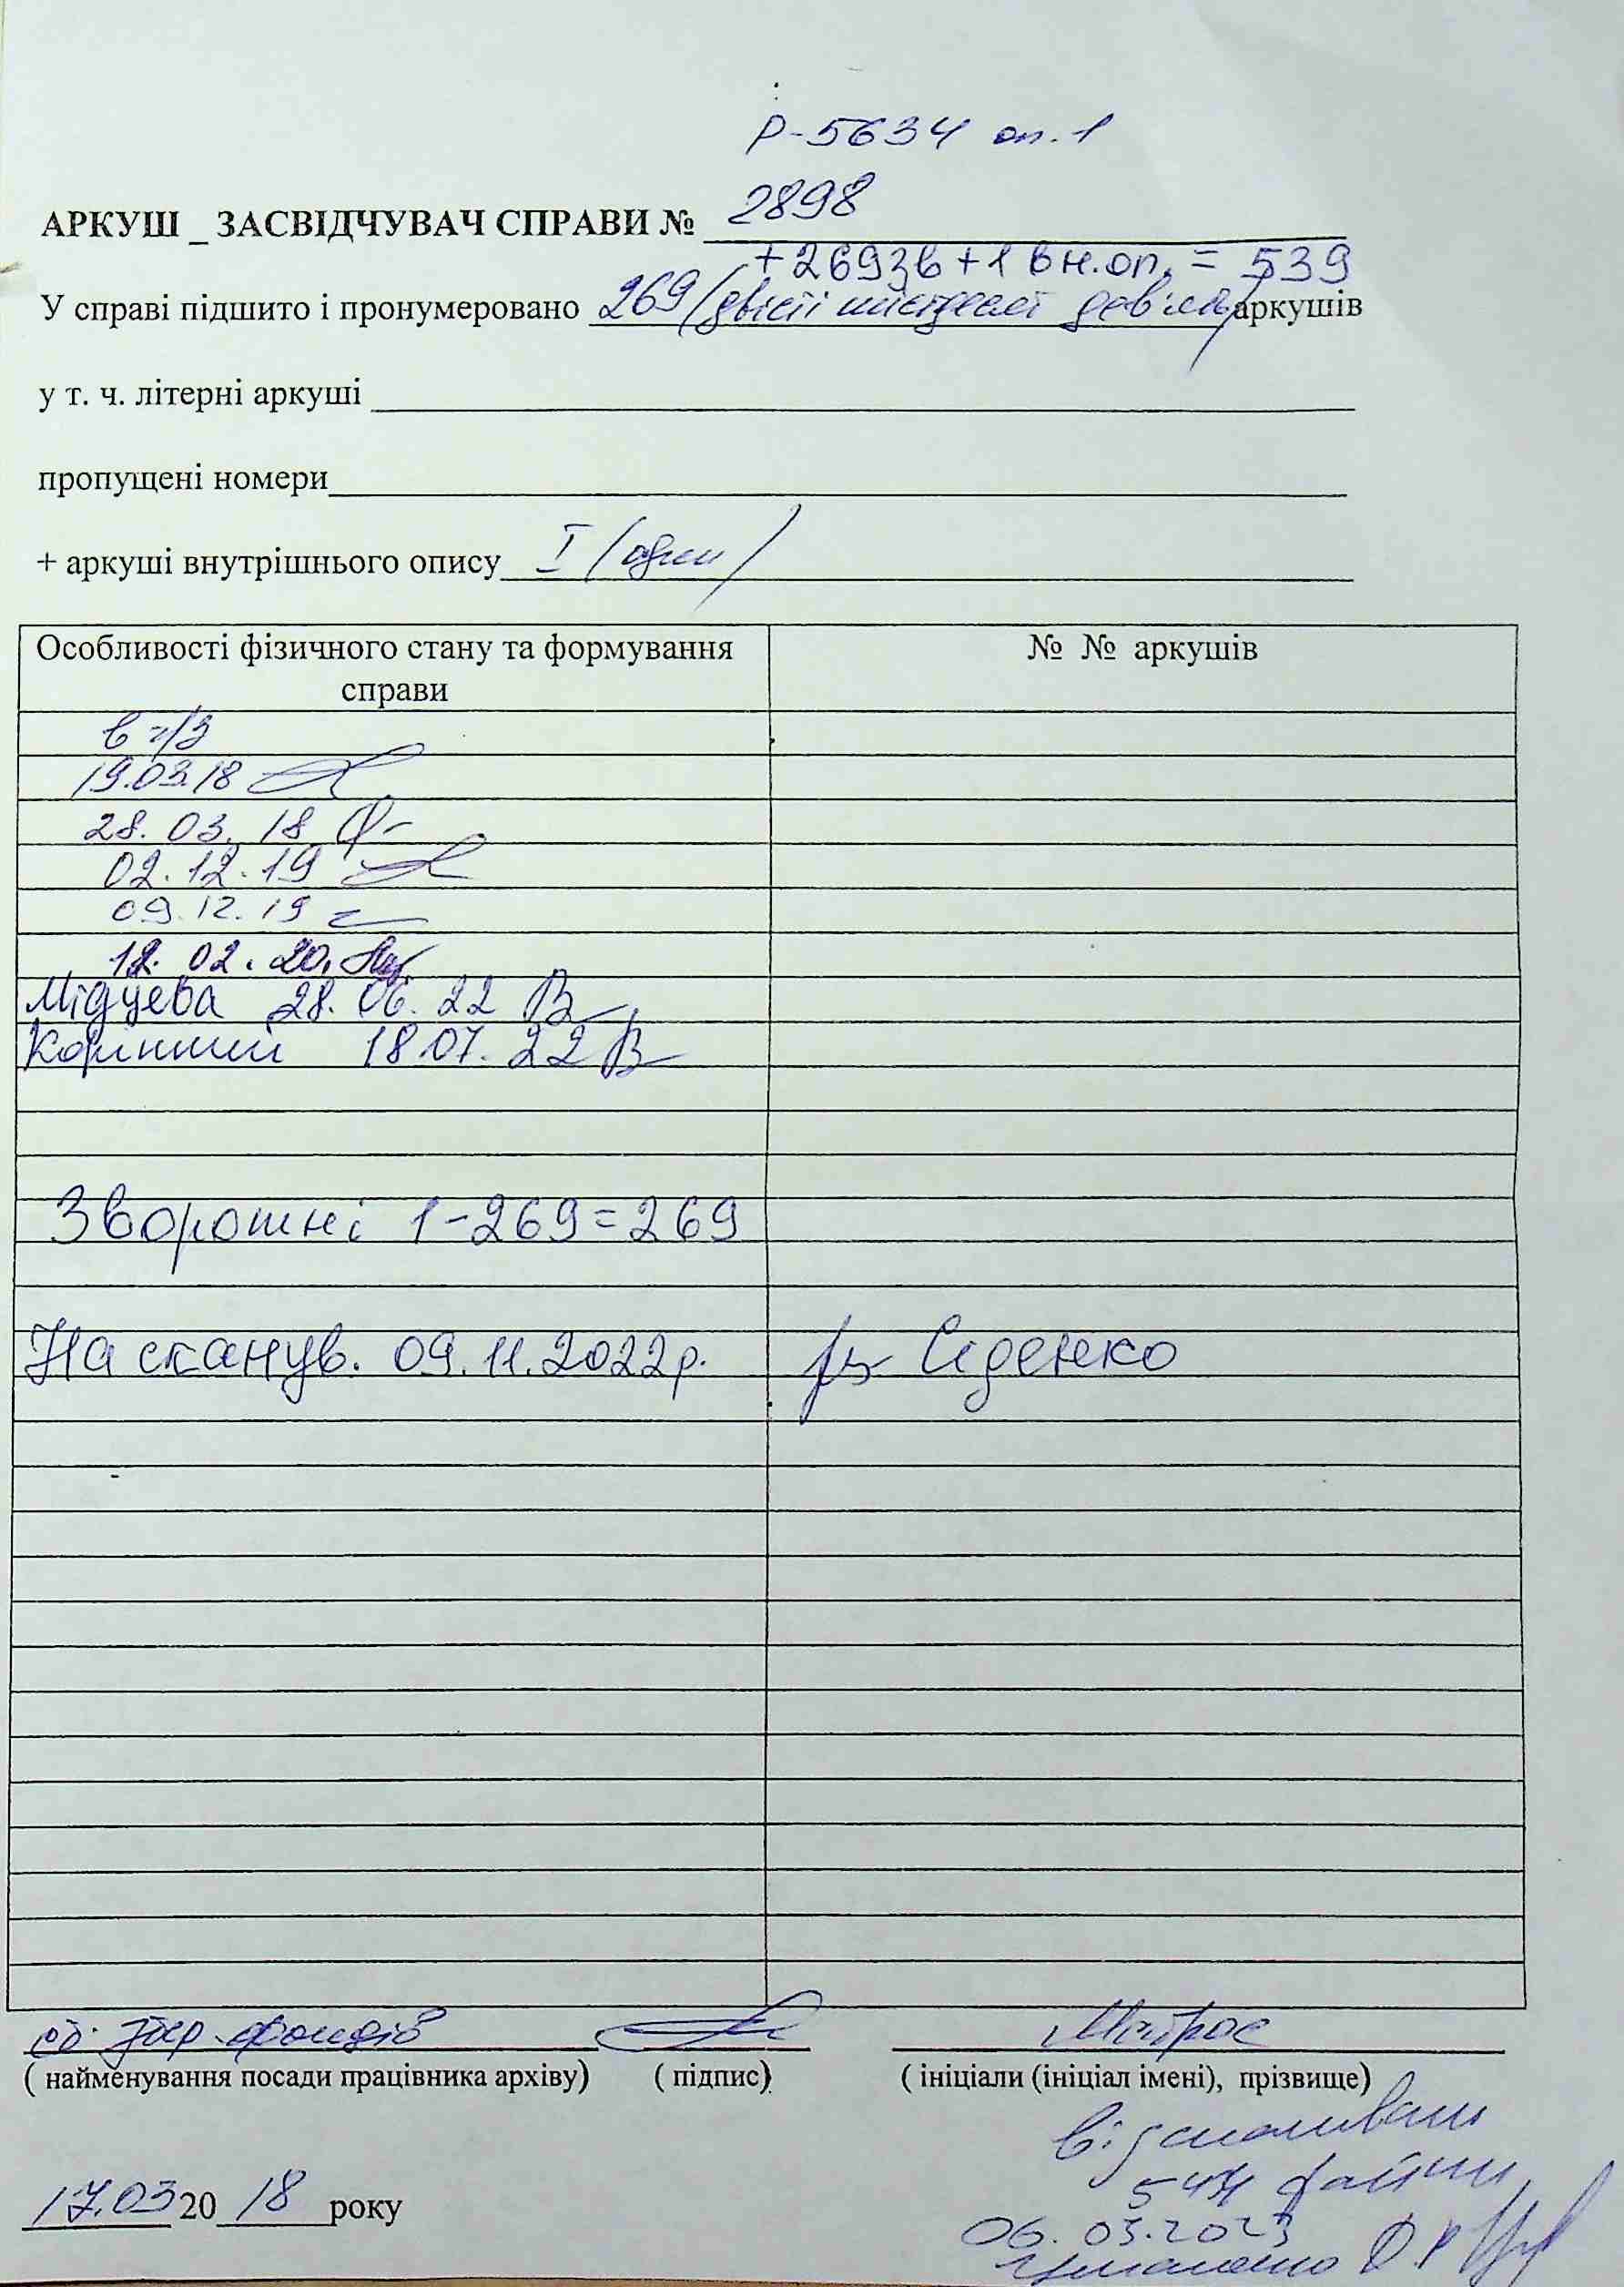 Р-5634 оп. 1
АРКУШ _ ЗАСВІДЧУВАЧ СПРАВИ № 2898
+ 269зв + 1 вн.оп. = 539
У справі підшито і пронумеровано 269 (двісті шістдесят дев'ять) аркушів
у т. ч. літерні аркуші
пропущені номери
+ аркуші внутрішнього опису I (один)
Особливості фізичного стану та формування справи
№ № аркушів
в ч/з
19.03.18
28.03.18
02.12.19
09.12.19
12.02.20
Мідцева 28.06.22
18.07.22
Зворотні 1-269=269
На сканув. 09.11.2022р. Сиденко
фондів Матрос
( найменування посади працівника архіву) ( підпис) ( ініціали (ініціал імені), прізвище)
17.03 20 18 року
544 файли
06.03.2023